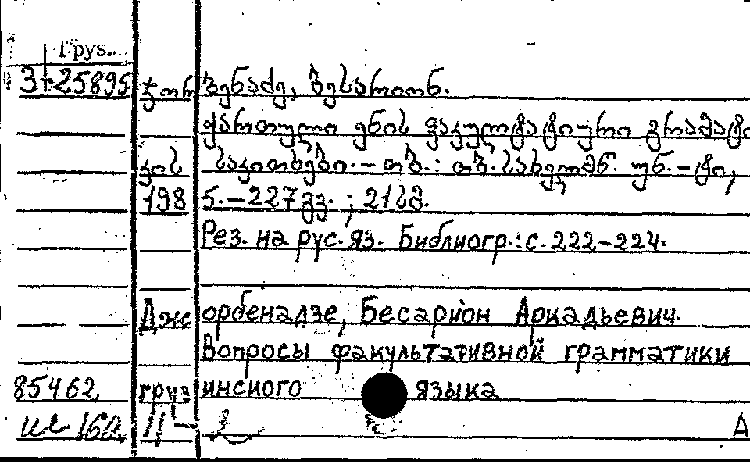 Груз.
3-25895 ჯორბენაძე, ბესარიონ.
ქართული ენის ფაკულტატიური გრამატი
კის საკითხები. – თბ.: თბ. სახელმწ. უნ.-ტი,
1985. – 227 გვ. ; 21 სმ.
Рез. на рус. яз. Библиогр.: с. 222-224.
Джорбенадзе, Бесарион Аркадьевич.
Вопросы факультативной грамматики
85462 грузинского языка